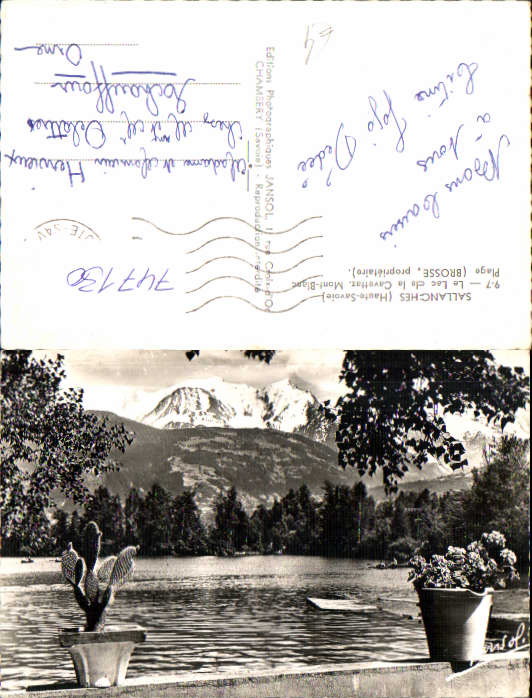 SALLANCHES (Haute-Savoie)
9.7 — Le Lac de la Cavettaz. Mont-Blanc
Plage (BROSSE, propriétaire).
Bons baisers
à tous
Jojo Dédée
64
Editions Photographiques JANSOL, 1 rue
CHAMBERY (Savoie) - Reproduction interdite
747130
TE-SAV
Madame et Germain Hervieux
chez Mr et Mme Delattre
Orne
Jansol